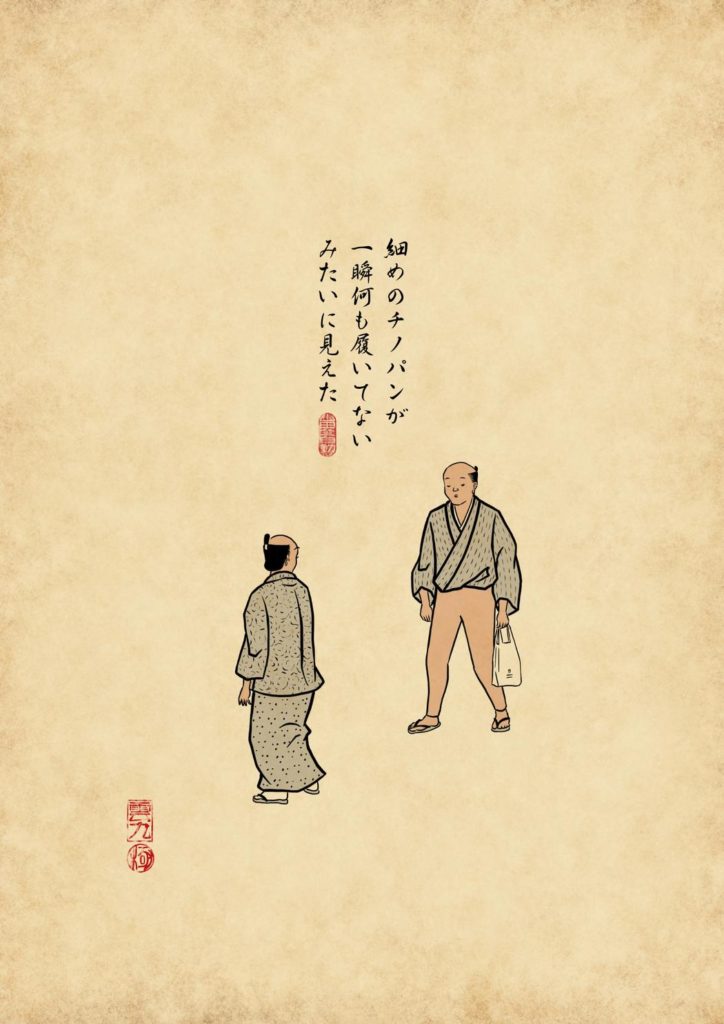 細めのチノパンが
一瞬何も履いてない
みたいに見えた